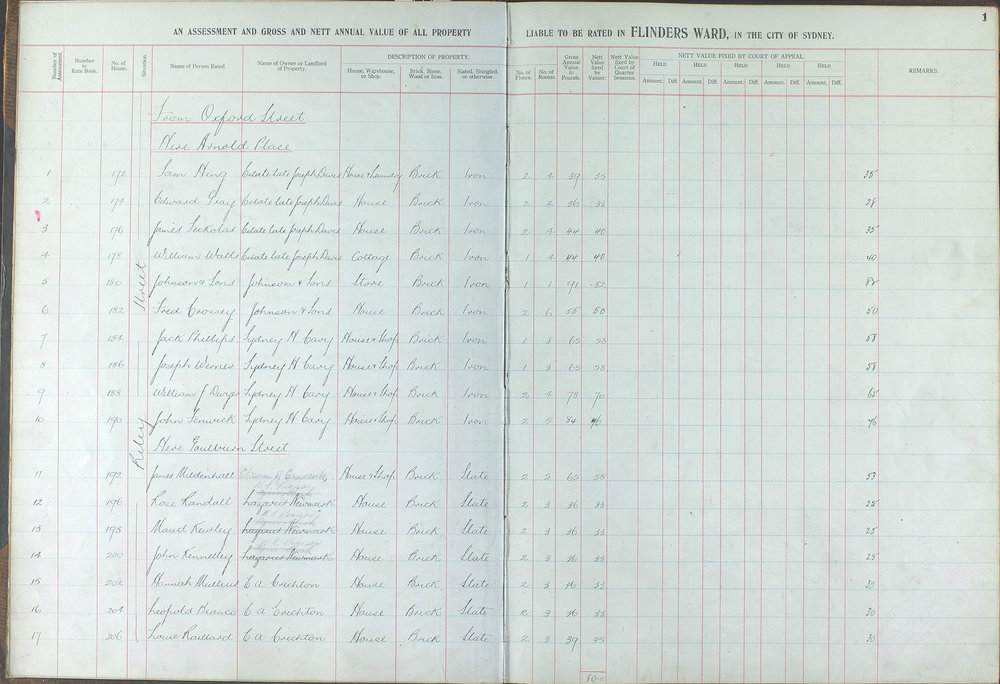 1
AN ASSESSMENT AND GROSS AND NETT ANNUAL VALUE OF ALL PROPERTY LIABLE TO BE RATED IN FLINDERS WARD, IN THE CITY OF SYDNEY.
Number of Assessment. Number in Rate Book. No. of House. Situation. Name of Person Rated. Name of Owner or Landlord of Property. DESCRIPTION OF PROPERTY. House, Warehouse, or Shop. Brick, Stone, Wood or Iron. Slated, Shingled, or otherwise. No. of Floors. No. of Rooms Gross Annual Value in Pounds Nett Value fixed by Valuer. Nett Value fixed by Court of Quarter Sessions. NETT VALUE FIXED BY COURT OF APPEAL REMARKS.
HELD HELD HELD HELD HELD
Amount. Diff. Amount. Diff. Amount. Diff. Amount. Diff. Amount. Diff.
Riley Street
From Oxford Street
Here Arnold Place
1 172 Sam Hing Estate late Joseph Davis House & Laundry Brick Iron 2 4 39 35 35
2 174 Edward Gray Estate late Joseph Davis House Brick Iron 2 2 36 33 28
3 176 James Estate late Joseph Davis House Brick Iron 2 4 44 40 35
4 178 William Watts Estate late Joseph Davis Cottage Brick Iron 1 4 44 40 40
5 180 Johnson & Sons Johnson & Sons Store Brick Iron 1 1 91 82 82
6 182 Fred Crossey Johnson & Sons House Brick Iron 2 6 55 50 50
7 184 Jack Phillips Sydney H Cary House & Shop Brick Iron 1 3 65 58 58
8 186 Joseph Werner Sydney H Cary House & Shop Brick Iron 1 3 65 58 58
9 188 William J Sydney H Cary House & Shop Brick Iron 2 4 78 70 65
10 190 John Fenwick Sydney H Cary House & Shop Brick Iron 2 5 84 76 76
Here Goulburn Street
11 192 James Mildenhall House & Shop Brick Slate 2 5 65 58 53
12 196 Rose Randall Lazarus Newmark House Brick Slate 2 3 36 33 25
13 198 Maud Kewley Lazarus Newmark House Brick Slate 2 3 36 33 25
14 200 John Kennelley Lazarus Newmark House Brick Slate 2 3 36 33 25
15 202 Hannah C A Crichton House Brick Slate 2 3 36 33 30
16 204 Leopold Bianco C A Crichton House Brick Slate 2 3 36 33 30
17 206 Louie Raillard C A Crichton House Brick Slate 2 3 39 35 30